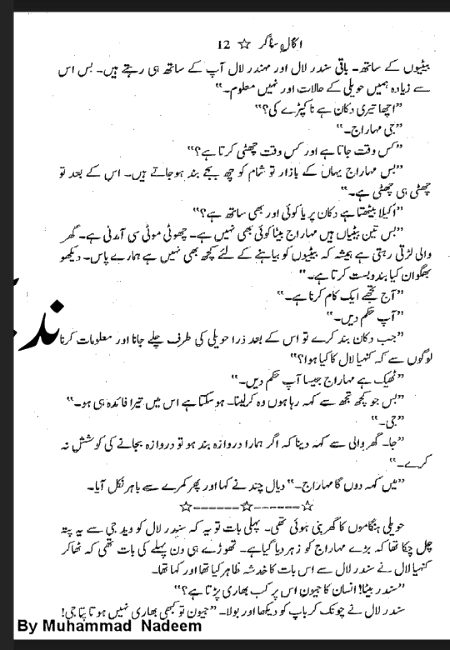 اکال ساگر ☆ 12
بیٹیوں کے ساتھ۔ باقی سندر لال اور مہندر لال آپ کے ساتھ ہی رہتے ہیں۔ بس اس
سے زیادہ ہمیں حویلی کے حالات اور نہیں معلوم۔"
"اچھا تیری دکان ہے نا کپڑے کی؟"
"جی مہاراج۔"
"کس وقت جاتا ہے اور کس وقت چھٹی کرتا ہے؟"
"بس مہاراج یہاں کے بازار تو شام کو چھ بجے بند ہو جاتے ہیں۔ اس کے بعد تو
چھٹی ہی چھٹی ہے۔"
"اکیلا بیٹھتا ہے دکان پر یا کوئی اور بھی ساتھ ہے؟"
"بس تین بیٹیاں ہیں مہاراج بیٹا کوئی بھی نہیں ہے۔ چھوٹی موٹی سی آمدنی ہے۔ گھر
والی لڑتی رہتی ہے ہمیشہ کہ بیٹیوں کو بیاہنے کے لئے کچھ بھی نہیں ہے ہمارے پاس۔ دیکھو
بھگوان کیا بندوبست کرتا ہے۔"
"آج تجھے ایک کام کرنا ہے۔"
"آپ حکم دیں۔"
"جب دکان بند کرے تو اس کے بعد ذرا حویلی کی طرف چلے جانا اور معلومات کرنا
لوگوں سے کہ کنہیا لال کا کیا ہوا؟"
"ٹھیک ہے مہاراج جیسا آپ حکم دیں۔"
"بس جو کچھ تجھ سے کہہ رہا ہوں وہ کر لینا۔ ہو سکتا ہے اس میں تیرا فائدہ ہی ہو۔"
"جی۔"
"جا۔ گھر والی سے کہہ دینا کہ اگر ہمارا دروازہ بند ہو تو دروازہ بجانے کی کوشش نہ
کرے۔"
"میں کہہ دوں گا مہاراج۔" دیال چند نے کہا اور پھر کمرے سے باہر نکل آیا۔
☆------☆------☆
حویلی ہنگاموں کا گھر بنی ہوئی تھی۔ پہلی بات تو یہ کہ سندر لال کو وید جی سے یہ پتہ
چل چکا تھا کہ بڑے مہاراج کو زہر دیا گیا ہے۔ تھوڑے ہی دن پہلے کی بات تھی کہ ٹھاکر
کنہیا لال نے سندر لال سے اس بات کا خدشہ ظاہر کیا تھا اور کہا تھا۔
"سندر بیٹا! انسان کا جیون اس پر کب بھاری پڑتا ہے؟"
سندر لال نے چونک کر باپ کو دیکھا اور بولا۔ "جیون تو کبھی بھاری نہیں ہوتا پتا جی!
By Muhammad Nadeem